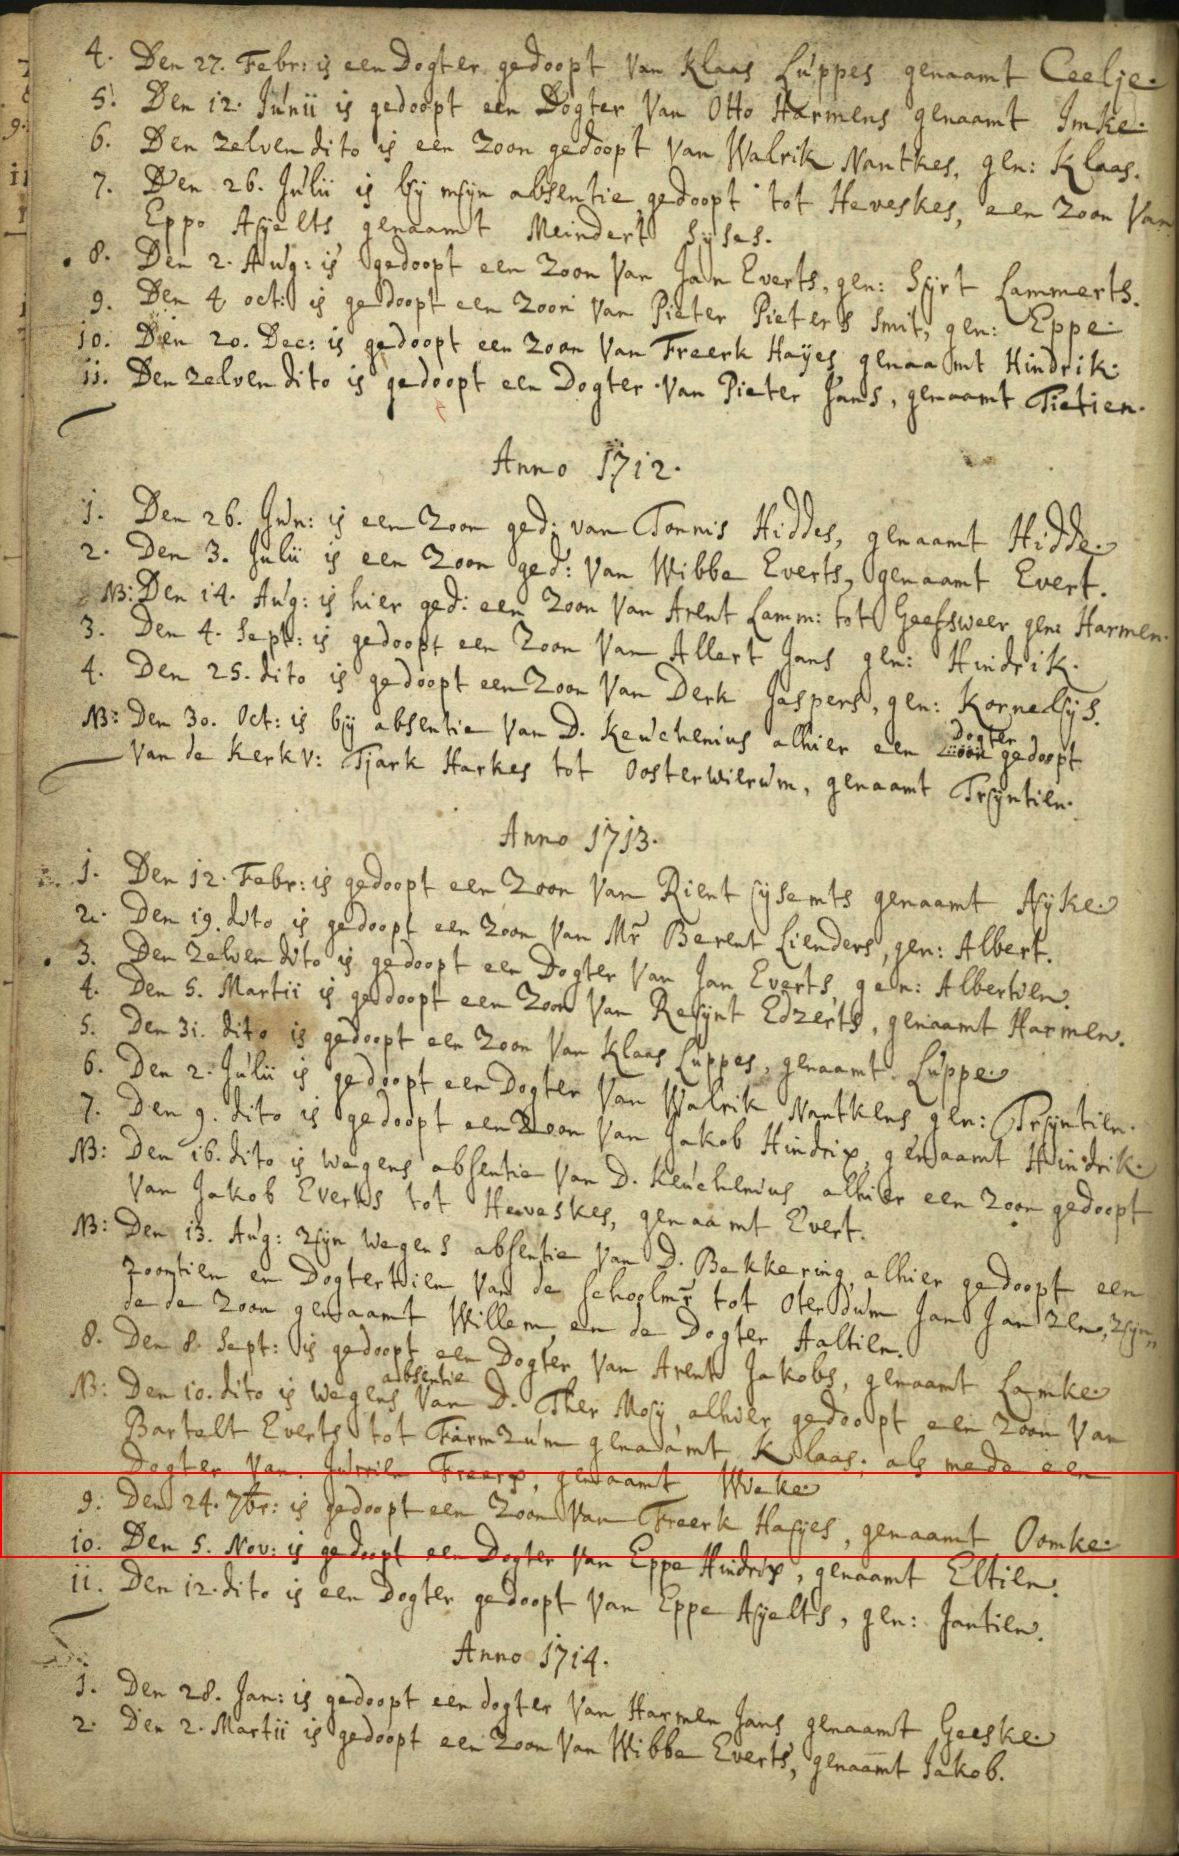 4. Den 27. Febr: is een Dogter gedoopt Van Klaas Luppes genaamt Ceelje.
5. Den 12. Junii is gedoopt een Dogter Van Otto Harmens genaamt Imke.
6. Den zelven dito is een Zoon gedoopt Van Walrik Nantkes, gen: Klaas.
7. Den 26. Julii is bÿ mÿn absentie gedoopt tot Heveskes, een Zoon Van
Eppo Aÿelts genaamt Meindert Sÿses.
8. Den 2. Aug: is gedoopt een Zoon Van Jan Everts, gen: Sÿrt Lammerts.
9. Den 4 oct: is gedoopt een Zoon Van Pieter Pieters Smit, gen: Eppe.
10. Den 20. Dec: is gedoopt een Zoon Van Freerk Haÿes genaamt Hindrik.
11. Den zelven dito is gedoopt een Dogter Van Pieter Jans, genaamt Tietien.
Anno 1712.
1. Den 26. Jun: is een Zoon ged: van Tonnis Hiddes, genaamt Hidde.
2. Den 3. Julii is een Zoon ged: Van Wibbe Everts, genaamt Evert.
NB: Den 14. Aug: is hier ged: een Zoon Van Arent Lamm: tot Geefsweer gen: Harmen.
3. Den 4. Sept: is gedoopt een Zoon Van Allert Jans gen: Hindrik.
4. Den 25. dito is gedoopt een Zoon Van Derk Jaspers, gen: Kornelÿs.
NB: Den 30. Oct: is bÿ absentie Van D. Keuchenius alhier een Dogter gedoopt
Van de Kerkv: Tjark Harkes tot Oosterwierum, genaamt Trÿntien.
Anno 1713.
1. Den 12. Febr: is gedoopt een Zoon Van Rient Sÿsemts genaamt Aÿke.
2. Den 19. dito is gedoopt een Zoon Van Mr Berent Lienders, gen: Albert.
3. Den Zelven dito is gedoopt een Dogter Van Jan Everts, gen: Albertien.
4. Den 5. Martii is gedoopt een Zoon Van Reÿnt Edzerts, genaamt Harmen.
5. Den 31. dito is gedoopt een Zoon Van Klaas Luppes, genaamt Luppe.
6. Den 2. Julii is gedoopt een Dogter Van Walrik Nantkens gen: Trÿntien.
7. Den 9. dito is gedoopt een Zoon Van Jakob Hindrix, genaamt Hindrik.
NB: Den 16. dito is wegens absentie Van D. Keuchenius alhier een Zoon gedoopt
Van Jakob Everts tot Heveskes, genaamt Evert.
NB: Den 13. Aug: zÿn wegens absentie Van D. Bekkering, alhier gedoopt een
zoontien en Dogtertien Van de Schoolmr tot Oterdum Jan Janzen, zÿn,,
de de Zoon genaamt Willem, en de Dogter Aaltien.
8. Den 8. Sept: is gedoopt een Dogter Van Arent Jakobs, genaamt Lamke.
NB: Den 10. dito is wegens absentie Van D. Ther Moÿ alhier gedoopt een Zoon Van
Bartelt Everts tot Farmzum genaamt Klaas; als mede een
Dogter Van Jurrien Freerx, genaamt Wieke.
9. Den 24. 7br: is gedoopt een Zoon Van Freerk Haÿes, genaamt Oomke.
10. Den 5. Nov: is gedoopt een Dogter Van Eppe Hindrix, genaamt Eltien.
11. Den 12. dito is een Dogter gedoopt Van Eppe Aÿelts, gen: Jantien.
Anno 1714.
1. Den 28. Jan: is gedoopt een dogter Van Harmen Jans genaamt Geeske.
2. Den 2. Martii is gedoopt een Zoon Van Wibbe Everts, genaamt Jakob.